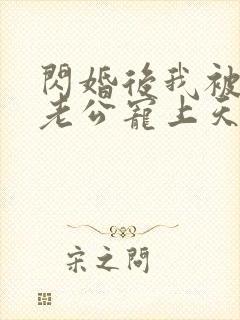 閃婚後我被
老公寵上天
宋之問